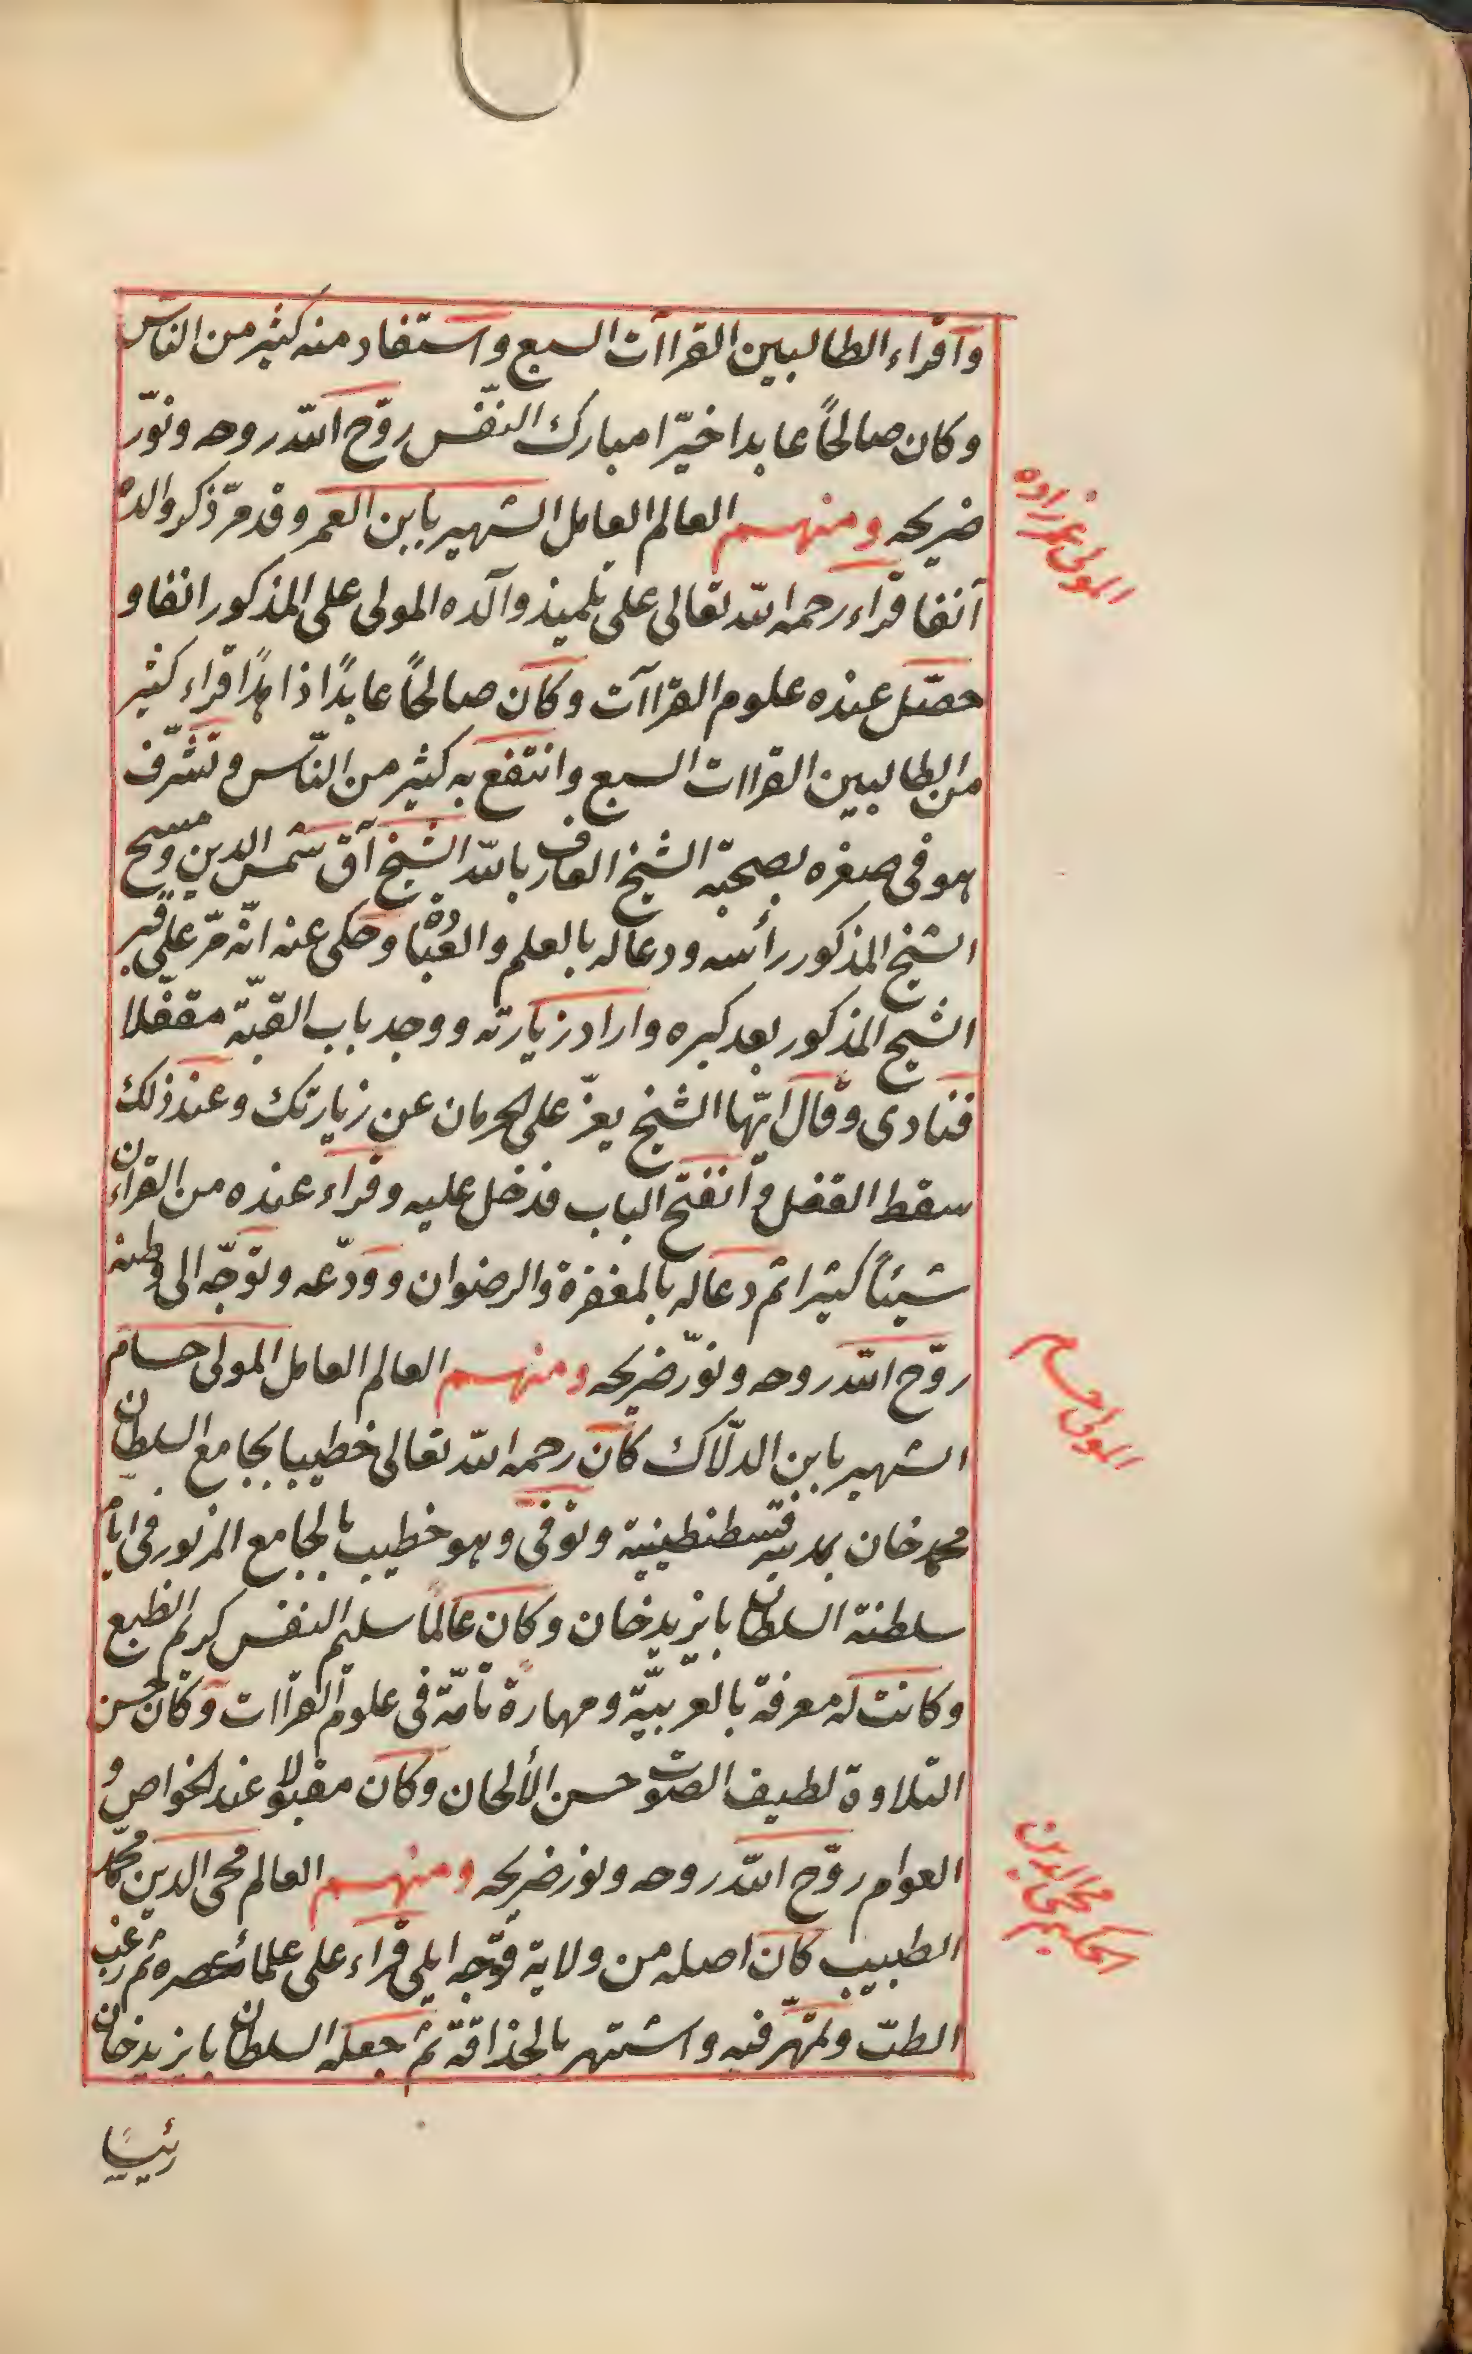 وآقراء الطالبين القراآت السبع واستفاد منه كثير من الناس
وكان صالحاً عابدا خيّرا مبارك النفّس روّح الله روحه ونوّر
ضريحه ومنهم العالم العامل الشهير بابن العمر وقد مرّ ذكر والده
آنفا قراء رحمه الله تعالى على تلميذ والده المولى على المذكور انفا و
حصّل عنده علوم القراآت وكان صالحاً عابدًا زاهدًا اقراء كثير
من الطالبين القراات السبع وانتفع به كثير من النّاس وتشرّف
هو فى صغره بصحبة الشيخ العارف بالله الشيخ آق شمس الدين ومسح
الشيخ المذكور رأسه ودعا له بالعلم والعبادة وحكى عنه انّه مرّ على قبر
الشيخ المذكور بعد كبره واراد زيارته ووجد باب القبّة مقفّلا
فنادى وقال ايّها الشيخ يعزّ على الحرمان عن زيارتك وعند ذلك
سقط القفل وانفتح الباب فدخل عليه وقراء عنده من القرآن
شيئاً كثيرا ثم دعا له بالمغفرة والرضوان وودّعه وتوجّه الى وطنه
روّح الله روحه ونوّر ضريحه ومنهم العالم العامل المولى حسام
الشهير بابن الدلّاك كان رحمه الله تعالى خطيبا بجامع السلطان
محمد خان بمدينة قسطنطينية وتوفى وهو خطيب بالجامع المزبور فى ايام
سلطنة السلطان بايزيد خان وكان عالمًا سليم النفس كريم الطبع
وكانت له معرفة بالعربيّة ومهارة تامّة فى علوم القراات وكان حسن
التلاوة لطيف الصّوت حسن الألحان وكان مقبولا عند الخواص و
العوام روّح الله روحه ونور ضريحه ومنهم العالم محى الدين محمّد
الطبيب كان اصله من ولاية قوّجه ايلى قراء على علمائ عصره ثم رغب
الطبّ وتمهّر فيه واشتهر بالحذاقة ثم جعله السلطان بايزيد خان
رئيسا
المولى عمر زاده
المولى حسام
الحكيم محى الدين